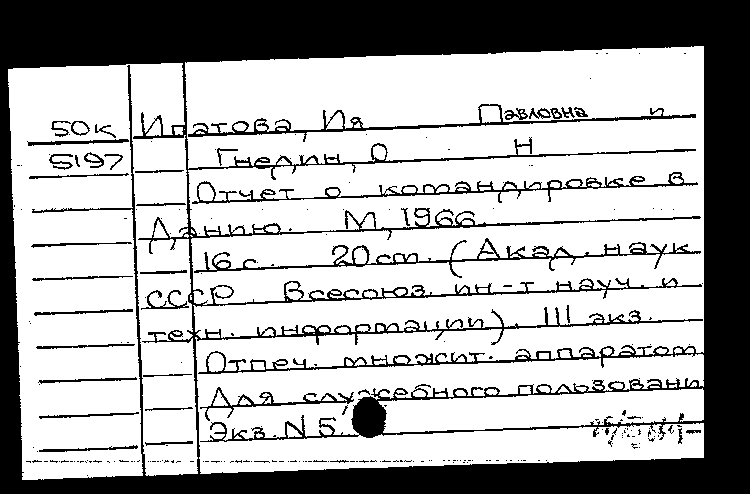 50к Ипатова, Ия Павловна и
5197 Гнедин, О Н
Отчет о командировке в
Данию. М, 1966.
16 с. 20 cm. (Акад. наук
СССР. Всесоюз. ин-т науч. и
техн. информации). 111 экз.
Отпеч. множит. аппаратом
Для служебного пользовани
Экз. N 5.